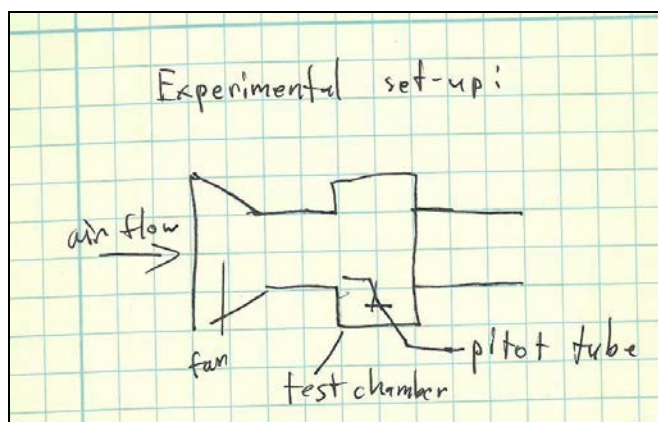 Experimental set-up:
air flow
fan
test chamber
pitot tube